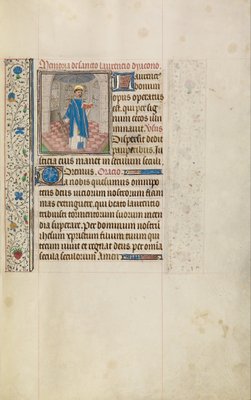 Memoria de sancto laurencio dyacono.
Laurenci⁹
bonum
opus operatus
est. qui per sig
num crucis illu
minauit. Vs̄us
Dispersit dedit
pauperibus. Iu
sticia eius manet in seculum seculi.
Domine. Oracio.
Da nobis quesumus omnipo
tens deus uiciorum nostrorum flam
mas extinguere. qui beato laurencio
tribuisti tormentorum suorum incen
dia superare. Per dominum nostrum
ihesum xpristum filium tuum qui
tecum uiuit et regnat deus per omnia
secula seculorum Amen